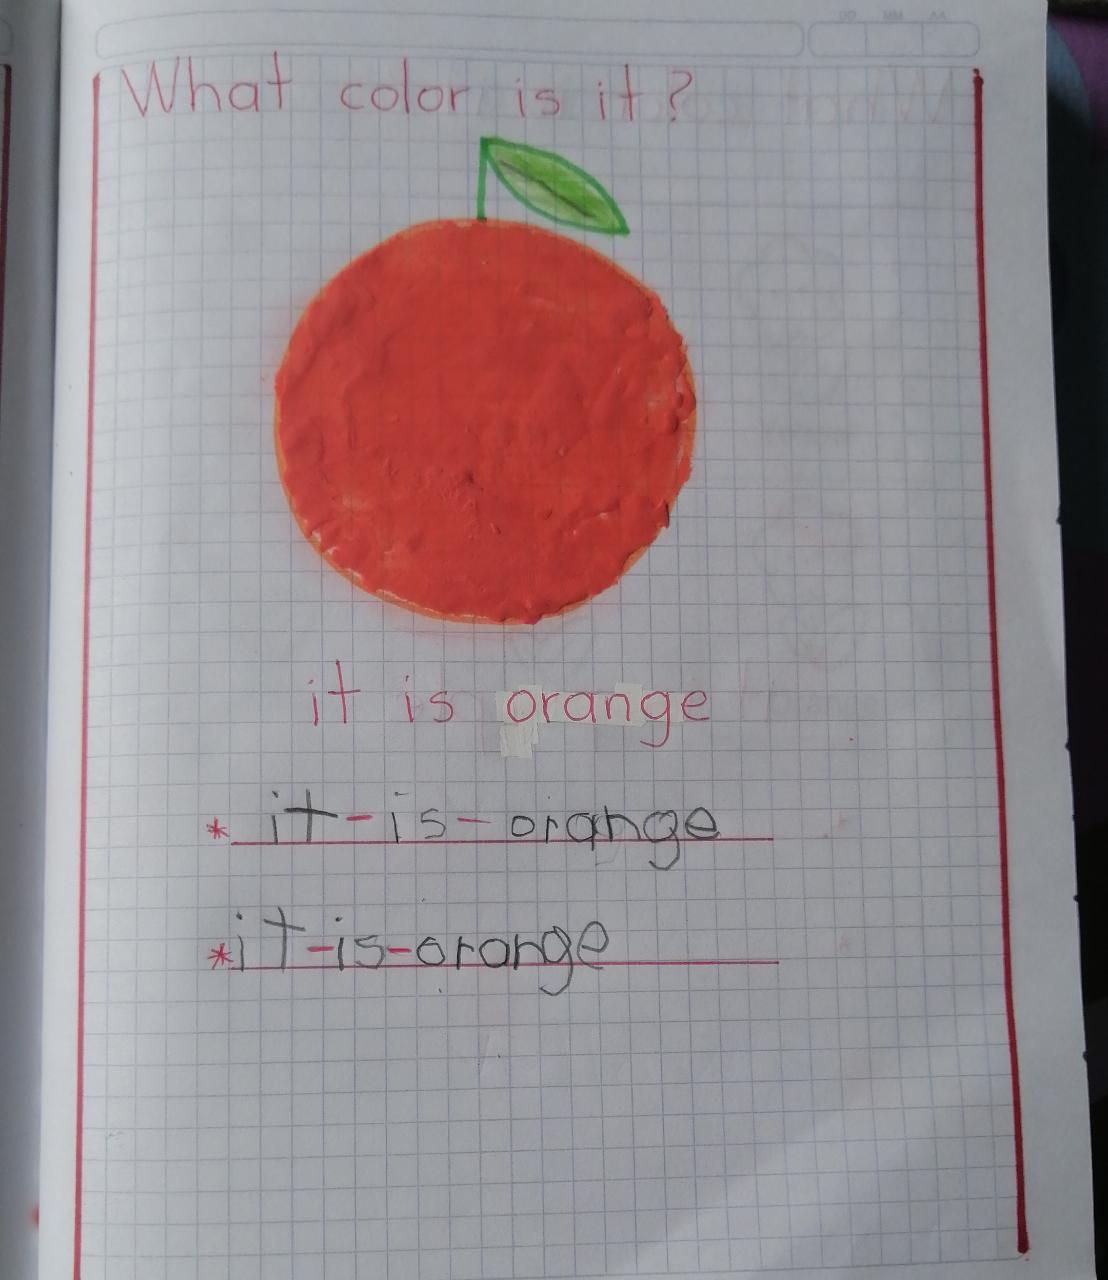 DD MM AA
What color is it?
it is orange
* it-is-orange
*it-is-orange